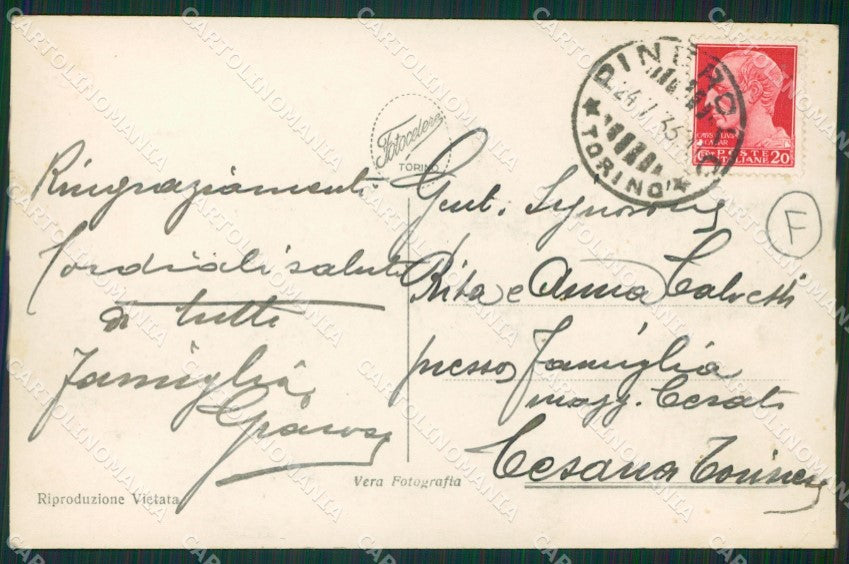 Ringraziamenti
Cordiali saluti
a tutti
Famiglia
Fotocelere
TORINO
PINEROLO
24.7.35
TORINO
POSTE
ITALIANE 20
F
Gent. Signorine
Rita e Anna Calvetti
presso Famiglia
magg. Cesati
Cesana Torinese
Riproduzione Vietata
Vera Fotografia
CARTOLINOMANIA